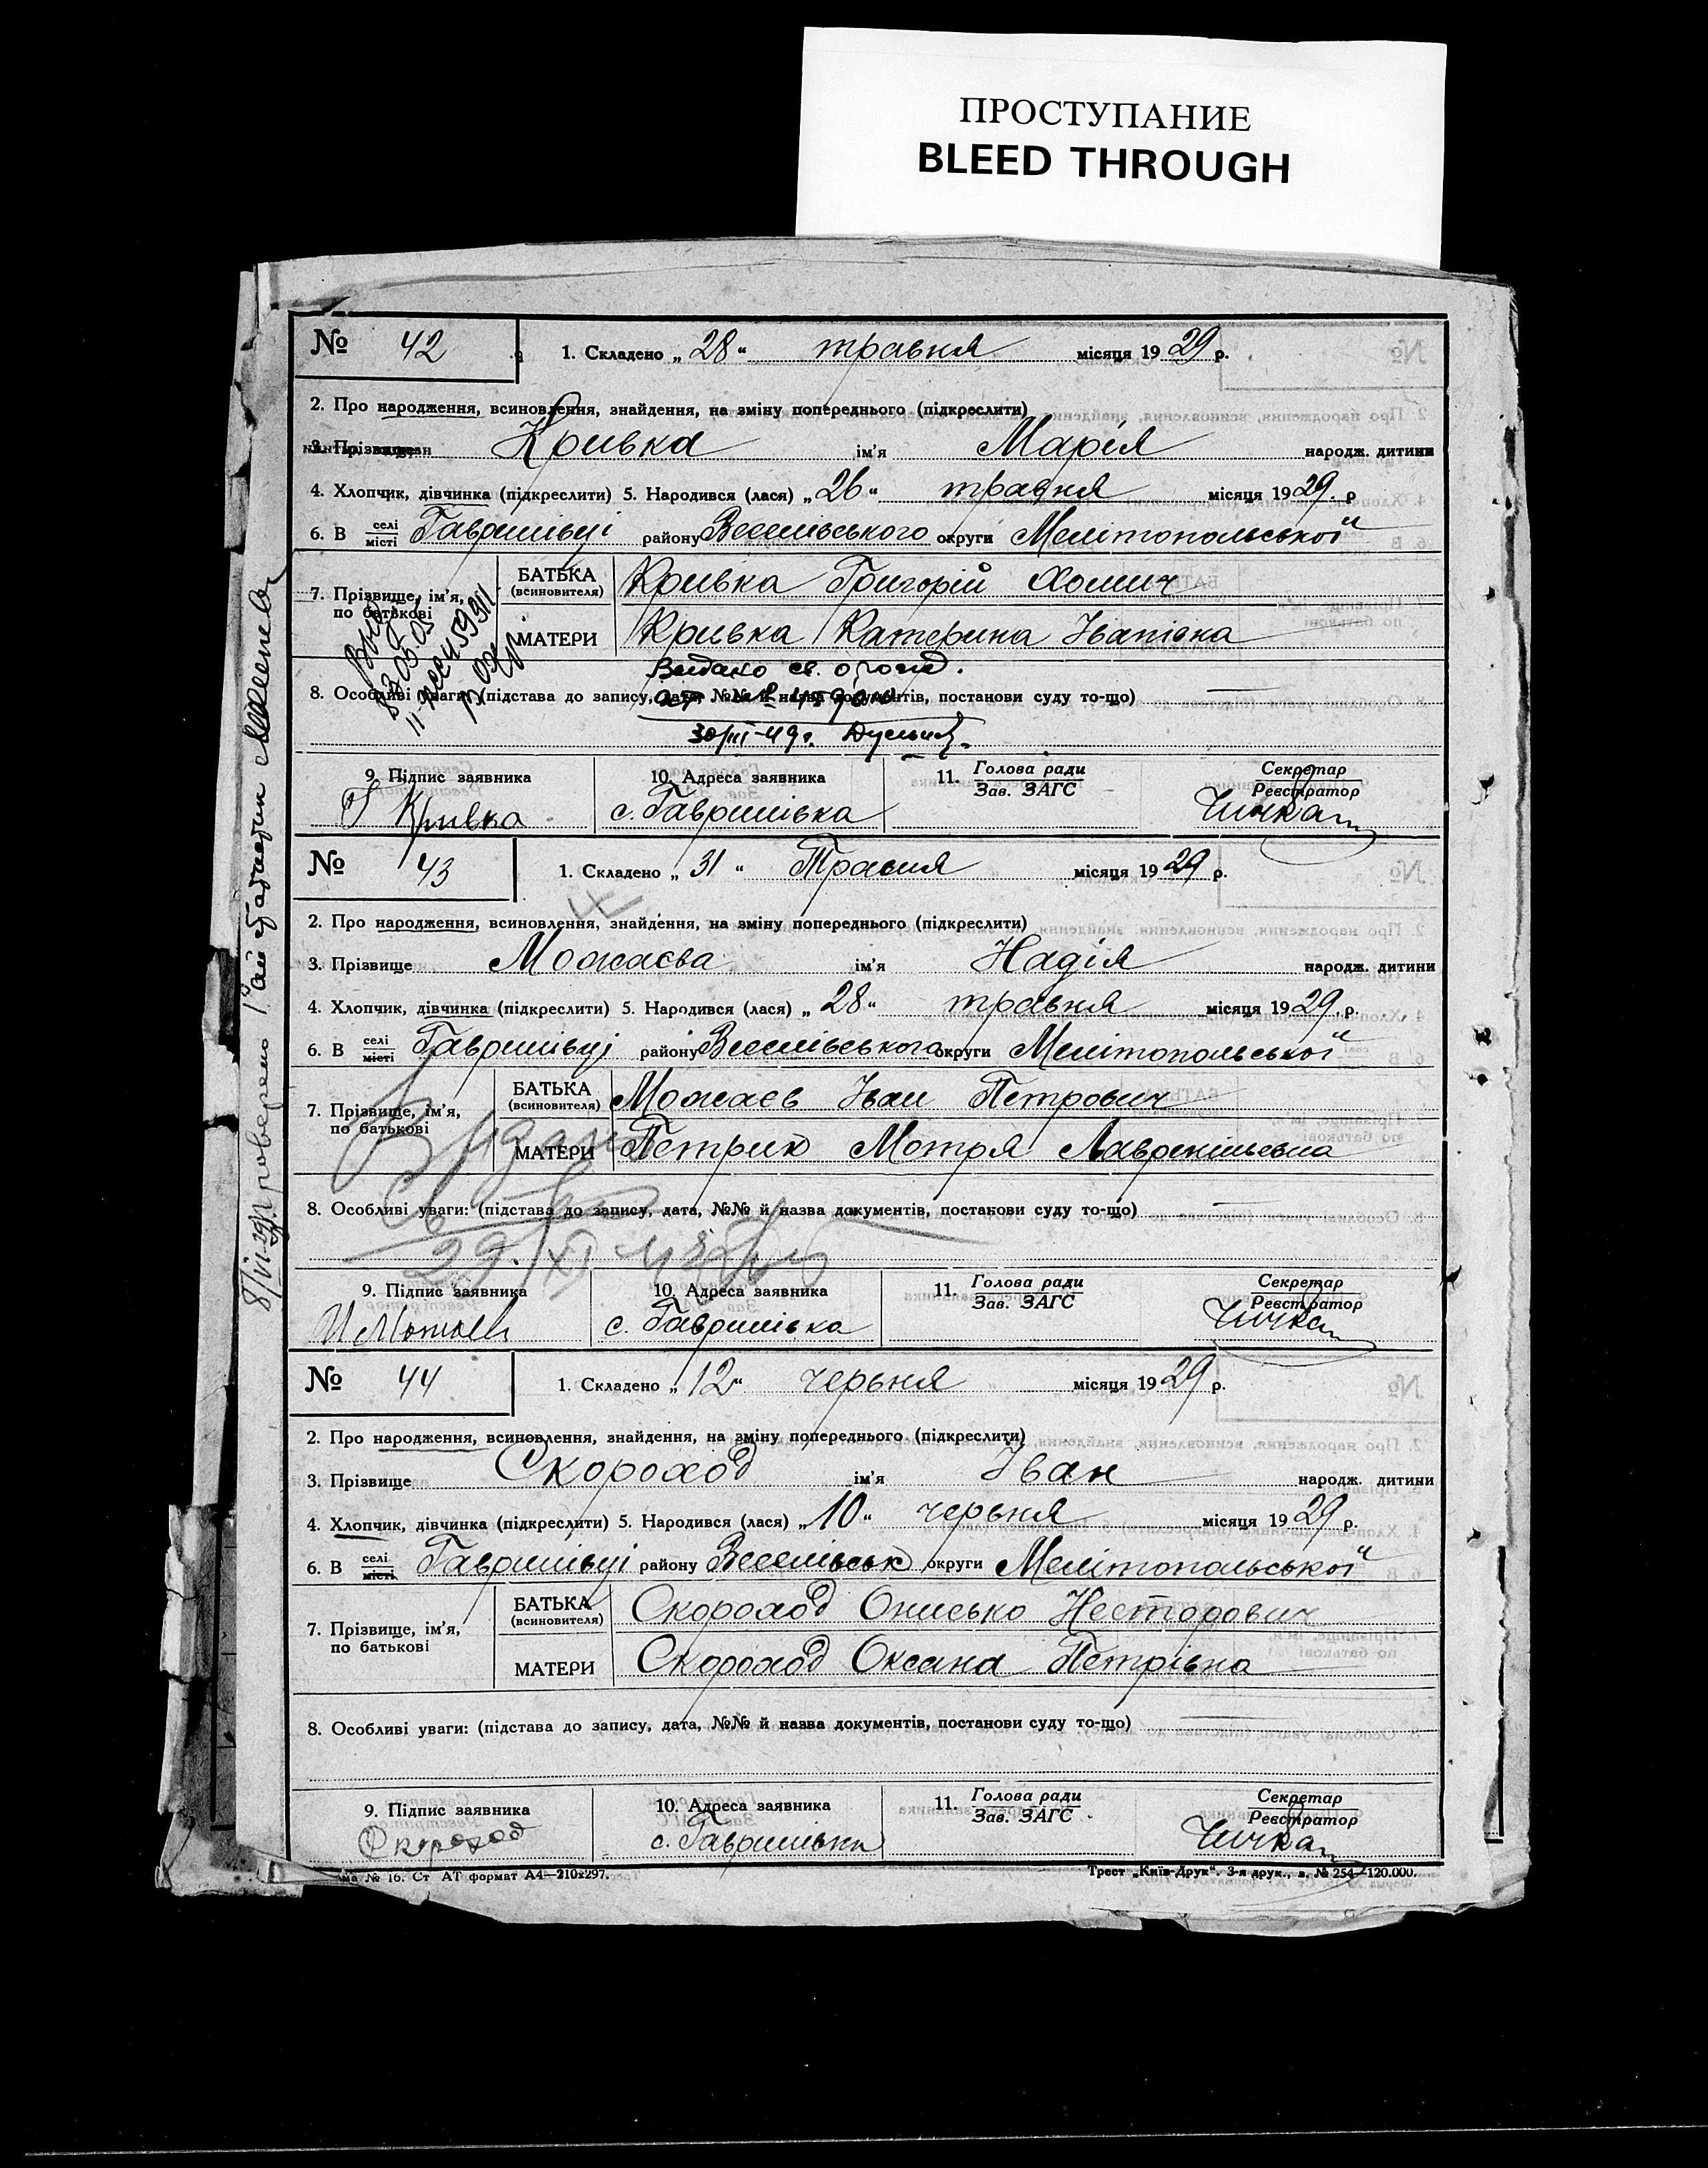 ПРОСТУПАНИЕ
BLEED THROUGH
№ 42 1. Складено „ 28 “ травня місяця 19 29 р.
2. Про народження, всиновлення, знайдення, на зміну попереднього (підкреслити)
3. Прізвище Кривка ім'я Марія народж. дитини
4. Хлопчик, дівчинка (підкреслити) 5. Народився (лася) „ 26 “ травня місяця 19 29. р
6. В селі місті Гаврилівці району Веселівського округи Мелітопольської
7. Прізвище, ім'я, по батькові
БАТЬКА (всиновителя) Кривка Григорій Хомич
МАТЕРИ Кривка Катерина Іванівна
Видано св. о рожд.
8. Особливі уваги: (підстава до запису, дата, №№ й назва документів, постанови суду то-що)
30/III-49г.
9. Підпис заявника 10. Адреса заявника 11. Голова ради Зав. ЗАГС Секретар Реєстратор
Г Кривка с. Гаврилівка Чичка
№ 43 1. Складено „ 31 “ Травня місяця 19 29 р.
2. Про народження, всиновлення, знайдення, на зміну попереднього (підкреслити)
3. Прізвище Можаєва ім'я Надія народж. дитини
4. Хлопчик, дівчинка (підкреслити) 5. Народився (лася) „ 28 “ травня місяця 19 29. р.
6. В селі місті Гаврилівці району Веселівського округи Мелітопольської
7. Прізвище, ім'я, по батькові
БАТЬКА (всиновителя) Можаєв Іван Петрович
МАТЕРИ Петрик Мотря
Видано
8. Особливі уваги: (підстава до запису, дата, №№ й назва документів, постанови суду то-що)
9. Підпис заявника 10. Адреса заявника 11. Голова ради Зав. ЗАГС Секретар Реєстратор
с. Гаврилівка Чичка
№ 44 1. Складено „ 12 “ черьня місяця 19 29 р.
2. Про народження, всиновлення, знайдення, на зміну попереднього (підкреслити)
3. Прізвище Скороход ім'я Іван народж. дитини
4. Хлопчик, дівчинка (підкреслити) 5. Народився (лася) „ 10 “ черьня місяця 19 29 р.
6. В селі місті Гаврилівці району Веселівськ округи Мелітопольської
7. Прізвище, ім'я, по батькові
БАТЬКА (всиновителя) Скороход Онисько Несторович
МАТЕРИ Скороход Оксана Петрівна
8. Особливі уваги: (підстава до запису, дата, №№ й назва документів, постанови суду то-що)
9. Підпис заявника 10. Адреса заявника 11. Голова ради Зав. ЗАГС Секретар Реєстратор
Скороход с. Гаврилівка Чичка
ма № 16. Ст АТ формат А4—210x297. Трест „Київ-Друк“. 3-я друк., з. № 254—120.000.